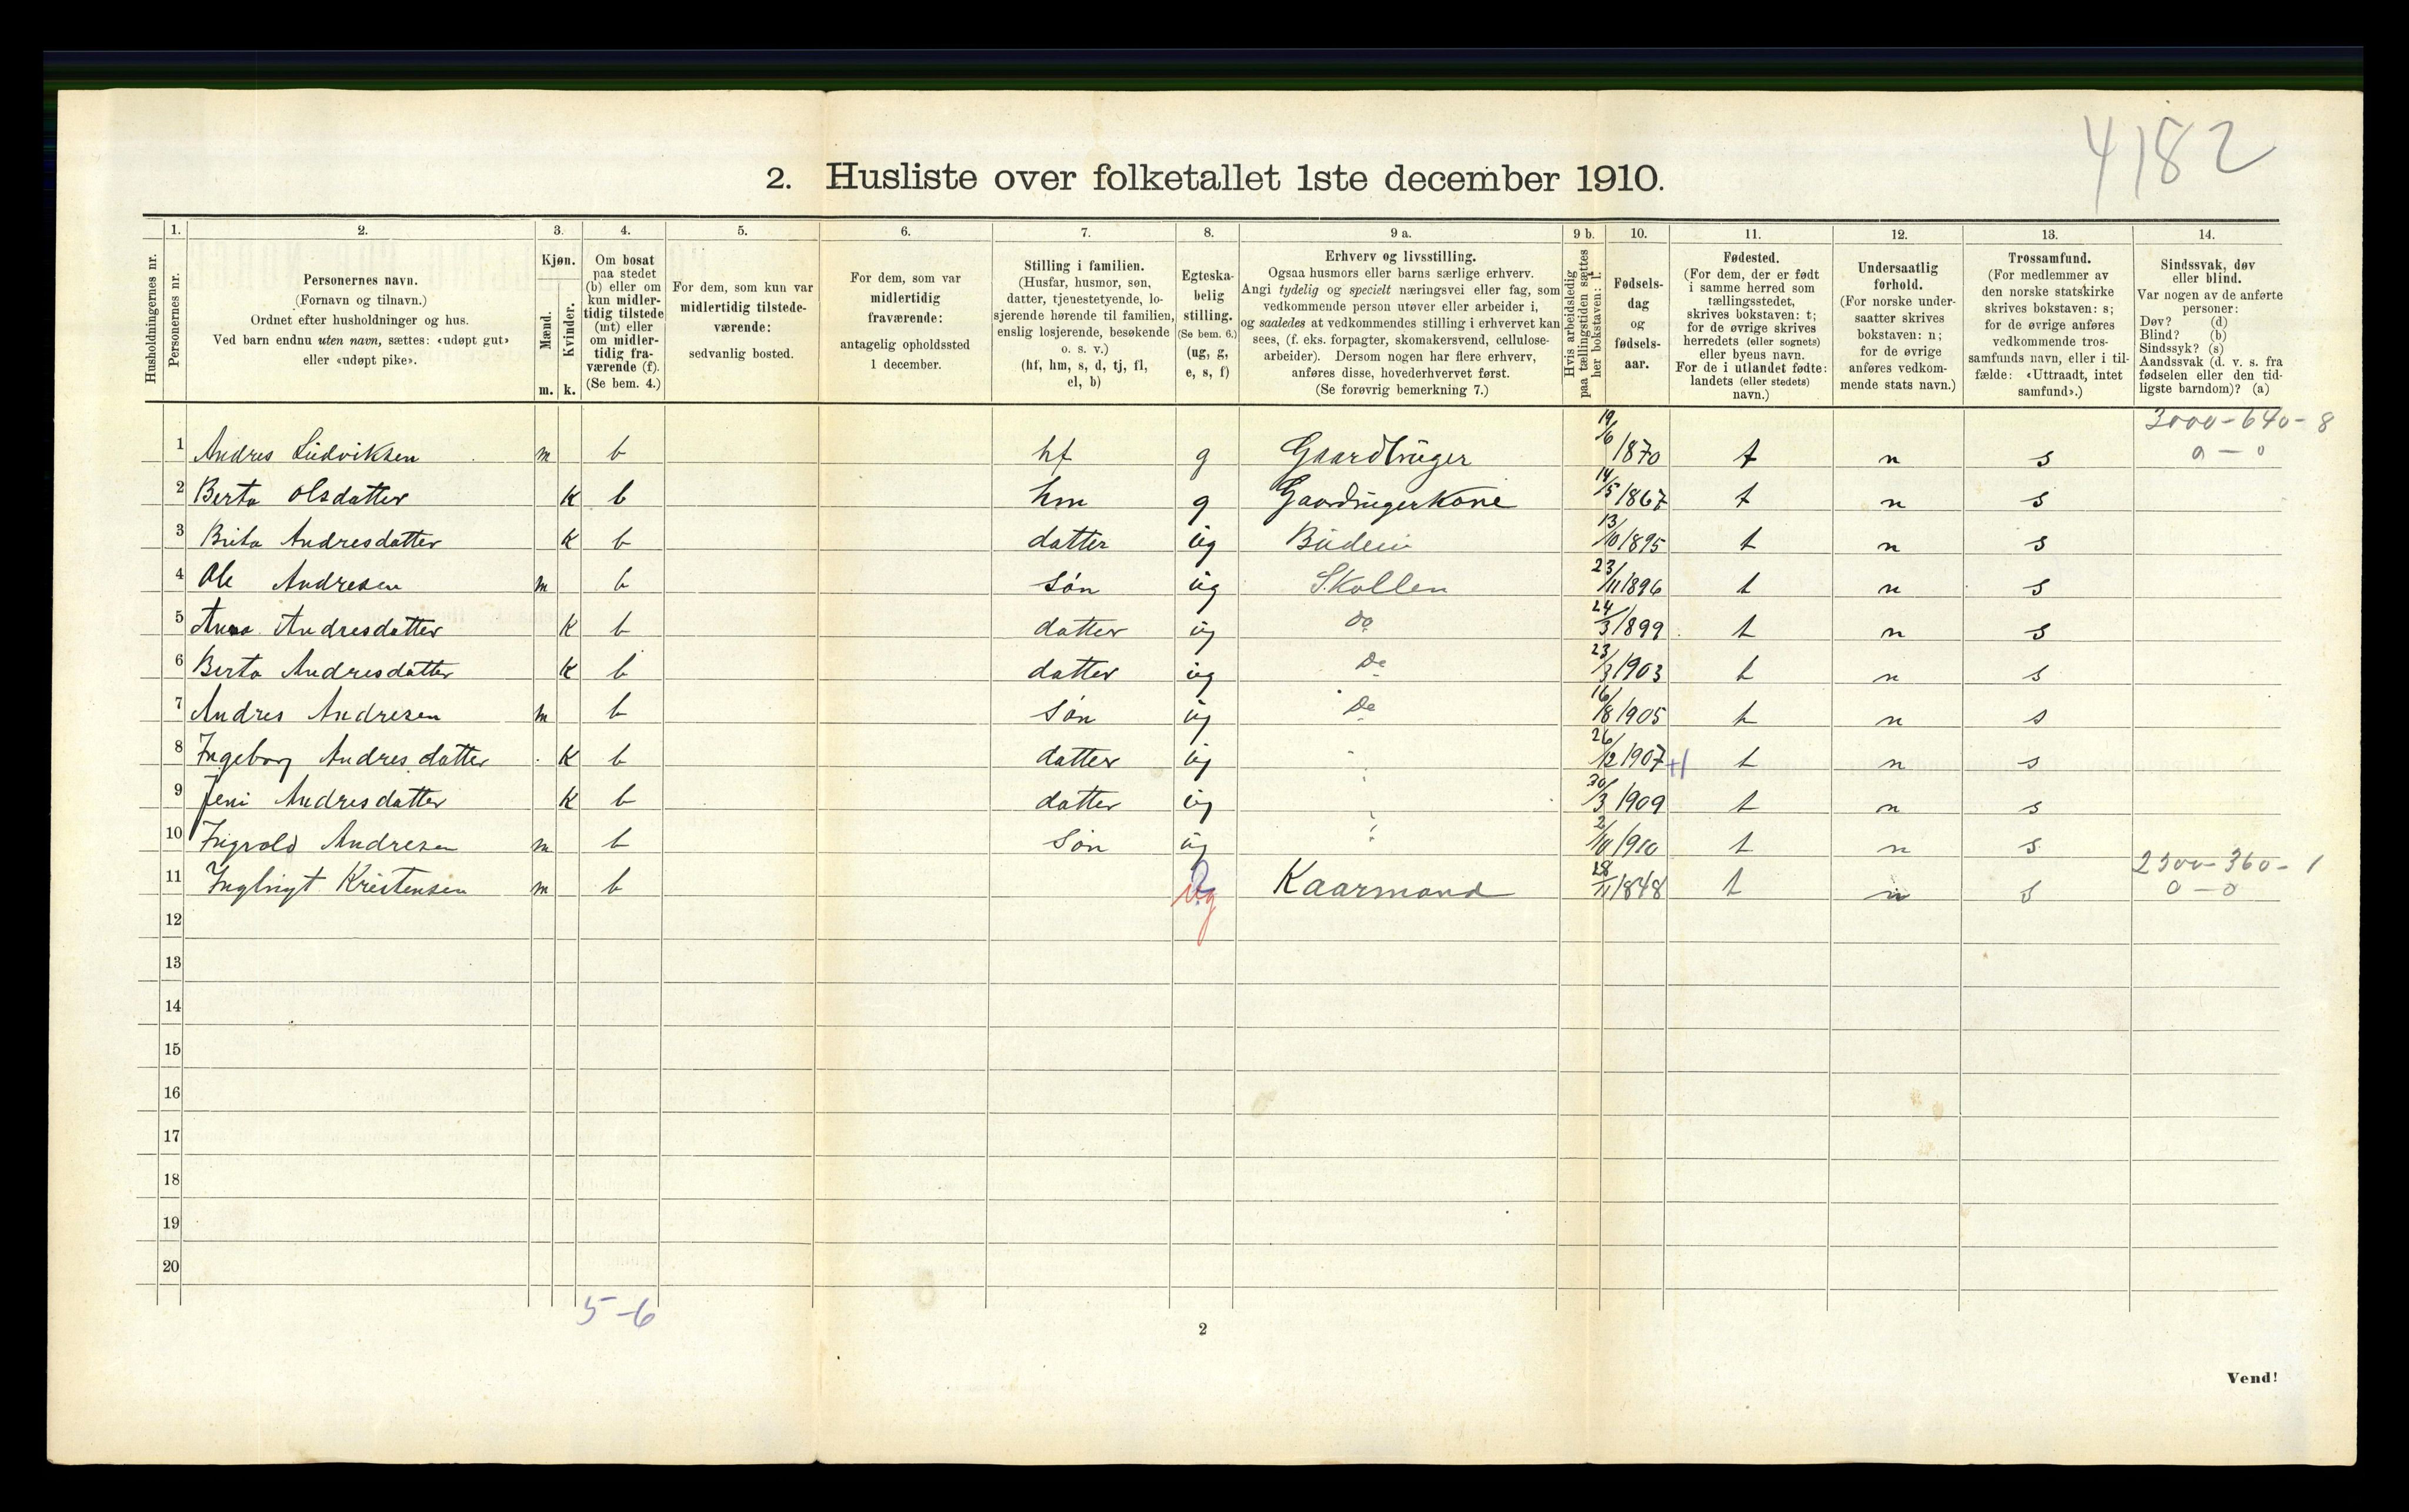 4182
2. Husliste over folketallet 1ste december 1910.
Husholdningernes nr.
1. Personernes nr.
2. Personernes navn. (Fornavn og tilnavn.) Ordnet efter husholdninger og hus. Ved barn endnu uten navn, sættes: «udøpt gut» eller «udøpt pike».
3. Kjøn. Mænd. m. Kvinder. k.
4. Om bosat paa stedet (b) eller om kun midlertidig tilstede (mt) eller om midlertidig fraværende (f). (Se bem. 4.)
5. For dem, som kun var midlertidig tilstedeværende: sedvanlig bosted.
6. For dem, som var midlertidig fraværende: antagelig opholdssted 1 december.
7. Stilling i familien. (Husfar, husmor, søn, datter, tjenestetyende, losjerende hørende til familien, enslig losjerende, besøkende o. s. v.) (hf, hm, s, d, tj, fl, el, b)
8. Egteskabelig stilling. (Se bem. 6.) (ug, g, e, s, f)
9 a. Erhverv og livsstilling. Ogsaa husmors eller barns særlige erhverv. Angi tydelig og specielt næringsvei eller fag, som vedkommende person utøver eller arbeider i, og saaledes at vedkommendes stilling i erhvervet kan sees, (f. eks. forpagter, skomakersvend, cellulosearbeider). Dersom nogen har flere erhverv, anføres disse, hovederhvervet først. (Se forøvrig bemerkning 7.)
9 b. Hvis arbeidsledig paa tællingstiden sættes her bokstaven: l.
10. Fødselsdag og fødselsaar.
11. Fødested. (For dem, der er født i samme herred som tællingsstedet, skrives bokstaven: t; for de øvrige skrives herredets (eller sognets) eller byens navn. For de i utlandet fødte: landets (eller stedets) navn.)
12. Undersaatlig forhold. (For norske undersaatter skrives bokstaven: n; for de øvrige anføres vedkommende stats navn.)
13. Trossamfund. (For medlemmer av den norske statskirke skrives bokstaven: s; for de øvrige anføres vedkommende trossamfunds navn, eller i tilfælde: «Uttraadt, intet samfund».)
14. Sindssvak, døv eller blind. Var nogen av de anførte personer: Døv? (d) Blind? (b) Sindssyk? (s) Aandssvak (d. v. s. fra fødselen eller den tidligste barndom)? (a)
3000-640-8
1 Andres Ludviksen m b hf g Gaardbruger 19/6 1870 t n s 0 - 0
2 Berta Olsdatter K b hm g Gaardrugerkone 14/5 1867 t n s
3 Brita Andresdatter K b datter ug Budeie 13/10 1895 t n s
4 Ole Andresen m b søn ug Skollen 23/11 1896 t n s
5 Anna Andresdatter K b datter ug do 24/3 1899 t n s
6 Berta Andresdatter K b datter ug Do 23/3 1903 t n s
7 Andres Andresen m b søn ug Do 16/8 1905 t n s
8 Ingeborg Andresdatter K b datter ug 26/12 1907 t n s
9 Jeni Andresdatter K b datter ug 30/3 1909 t n s
10 Ingvold Andresen m b Søn ug 2/10 1910 t n s
2300-360-1
11 Ingbrigt Kristensen m b ug Kaarmand 28/11 1848 t n s 0-0
12
13
14
15
16
17
18
19
20
5-6
2
Vend!